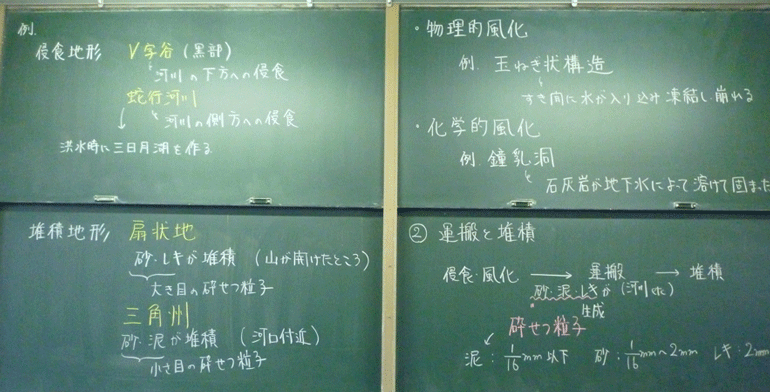 例.
侵食地形 V字谷 (黒部)
河川の下方への侵食
蛇行河川
河川の側方への侵食
洪水時に三日月湖を作る
堆積地形 扇状地
砂・レキが堆積 (山が開けたところ)
大き目の砕せつ粒子
三角州
砂・泥が堆積 (河口付近)
小さ目の砕せつ粒子
・物理的風化
例. 玉ねぎ状構造
すき間に水が入り込み凍結し崩れる
・化学的風化
例. 鐘乳洞
石灰岩が地下水によって溶けて固まった
② 運搬と堆積
侵食・風化 → 運搬 → 堆積
砂・泥・レキが (河川など)
生成
砕せつ粒子
泥: 1/16mm以下 砂: 1/16mm~2mm レキ: 2mm